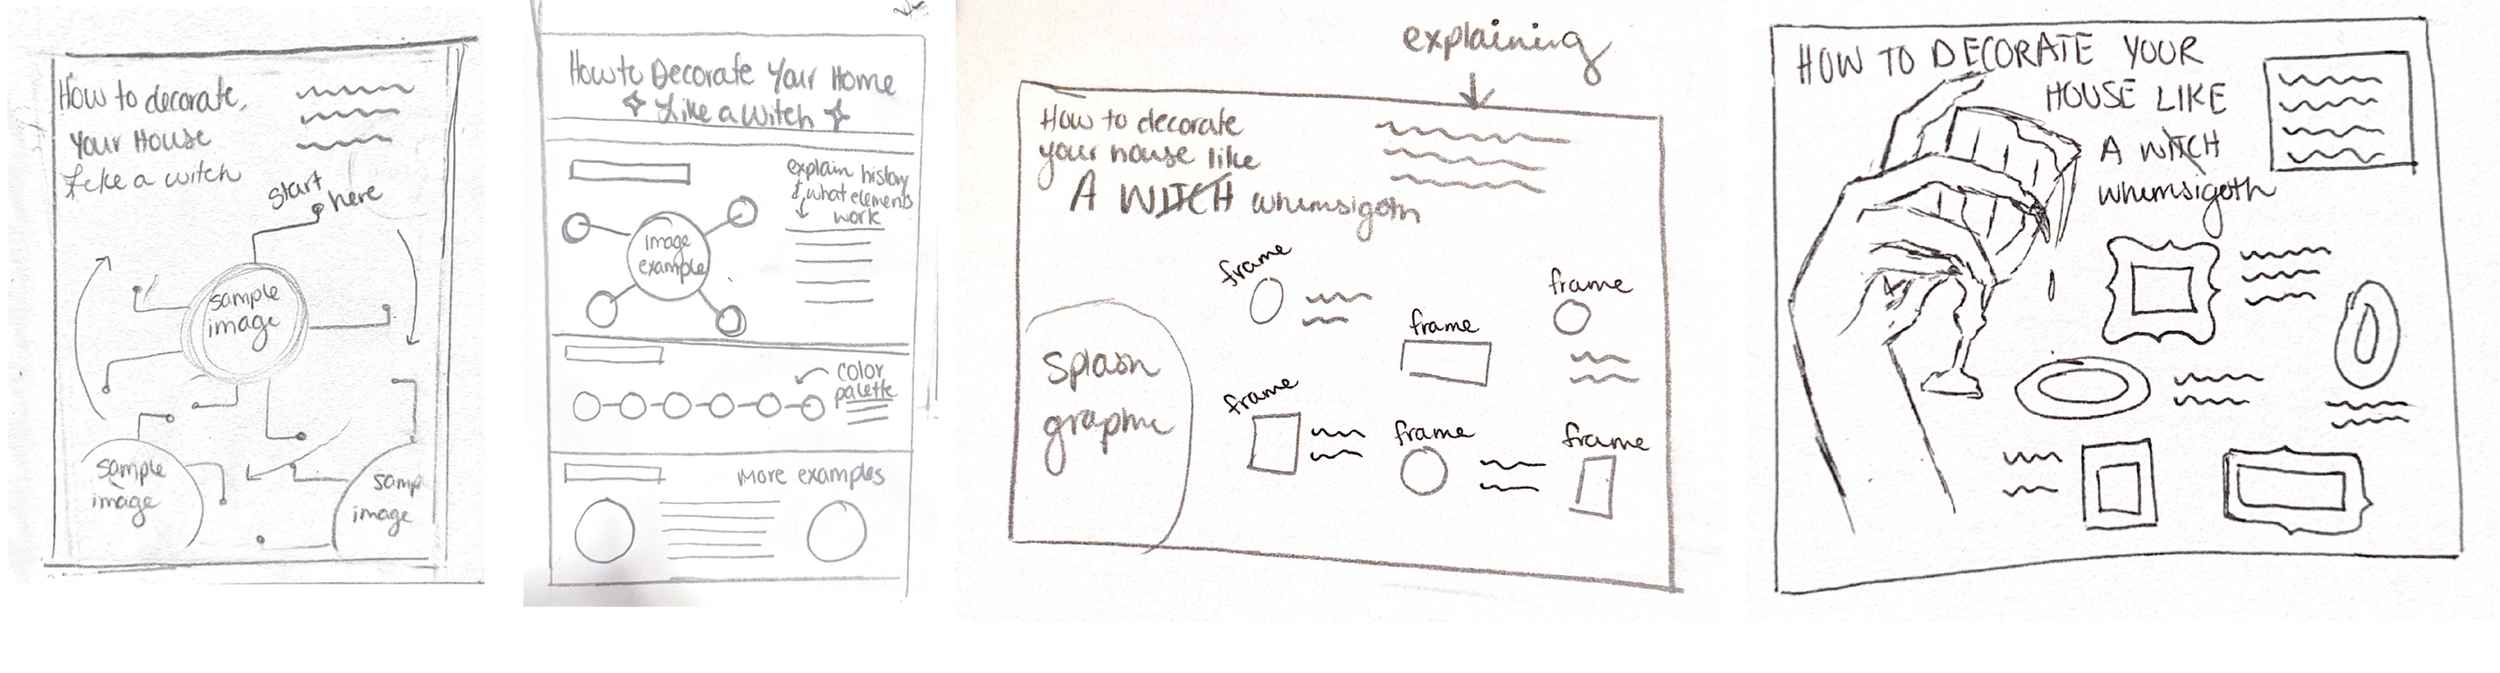 How to decorate
your House
Like a witch
start
here
sample
image
sample
image
samp
image
How to Decorate Your Home
Like a Witch
explain history
& what elements
work
image
example
color
palette
More examples
explaining
How to decorate
your house like
A WITCH whimsigoth
frame
frame
frame
splash
graphic
frame
frame
frame
HOW TO DECORATE YOUR
HOUSE LIKE
A WITCH
whimsigoth